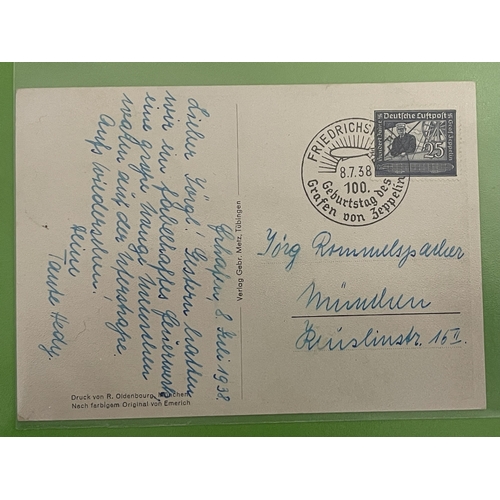 FRIEDRICHSH
8.7.38
100.
Geburtstag des
Grafen von Zeppelin
Deutsche Luftpost
Hundert Jahre Graf Zeppelin
25
8. Juli 1938.
Lieber Jörg! Gestern hatten
wir ein fabelhaftes Feuerwerk
eine große Menge Menschen
waren auf der Uferstraße
Auf Wiedersehen!
Deine
Tante Hedy.
Verlag Gebr. Metz, Tübingen
Jörg Rommelspacher
München
15 II.
Druck von R. Oldenbourg, München
Nach farbigem Original von Emerich